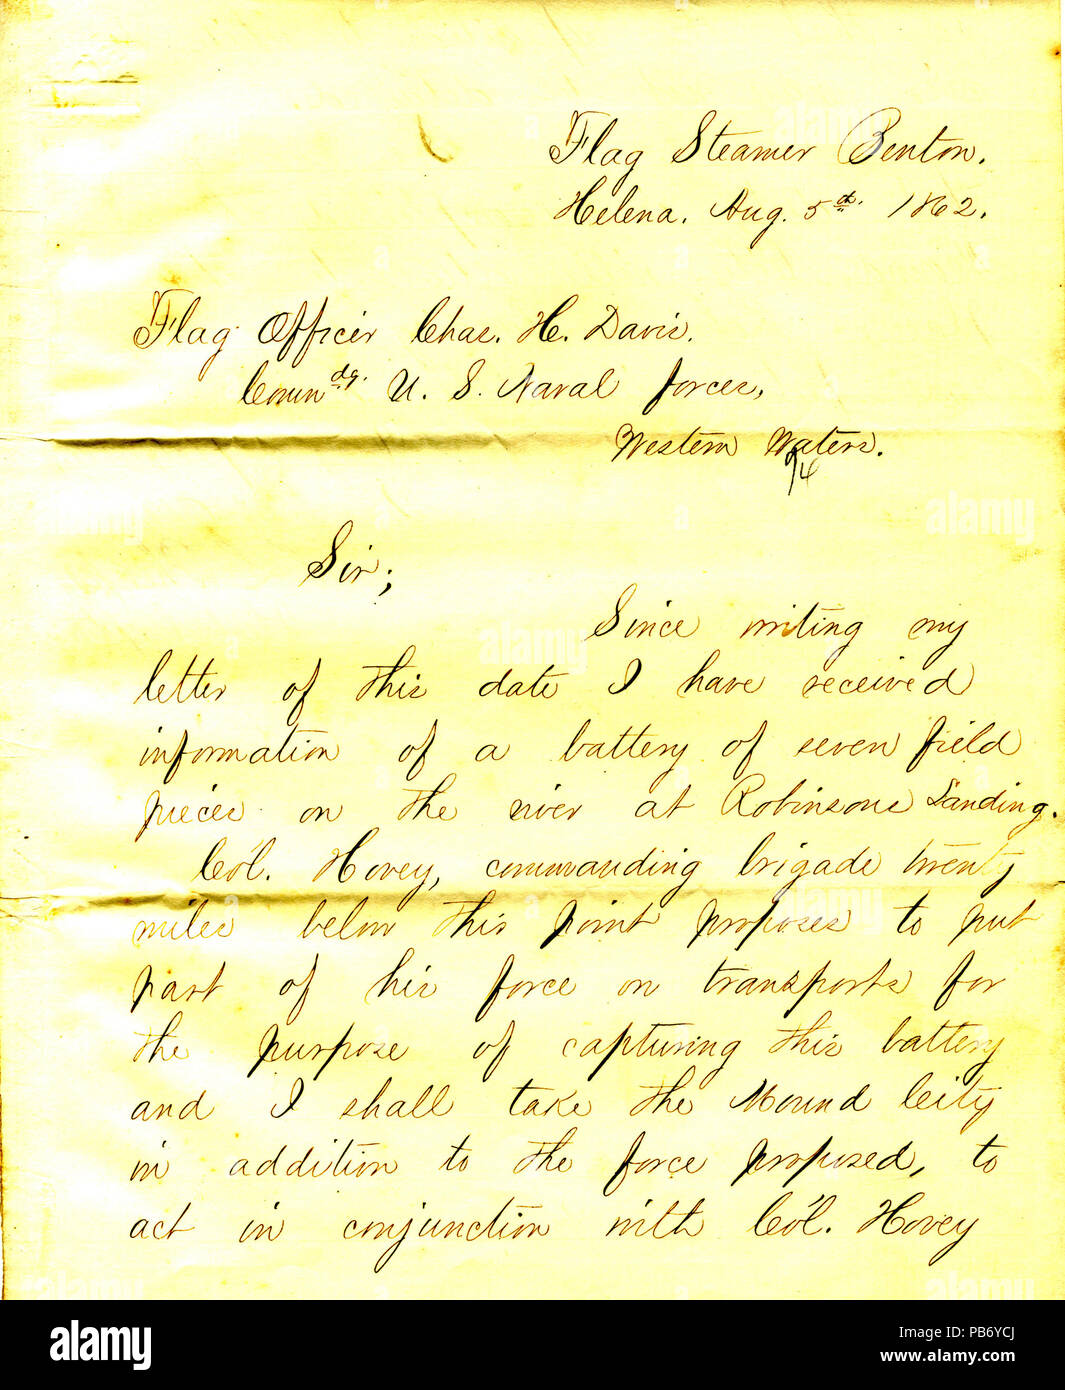 Flag Steamer Benton.
Helena. Aug. 5th. 1862.
Flag Officer Chas. H. Davis.
Comndg. U. S. Naval forces,
Western Waters.
Sir;
Since writing my
letter of this date I have received
information of a battery of seven field
pieces on the river at Robinsons Landing.
Col. Hovey, commanding brigade twenty
miles below this point proposes to put
part of his force on transports for
the purpose of capturing this battery
and I shall take the Mound City
in addition to the force proposed, to
act in conjunction with Col. Hovey
alamy
Image ID: PB6YCJ
www.alamy.com